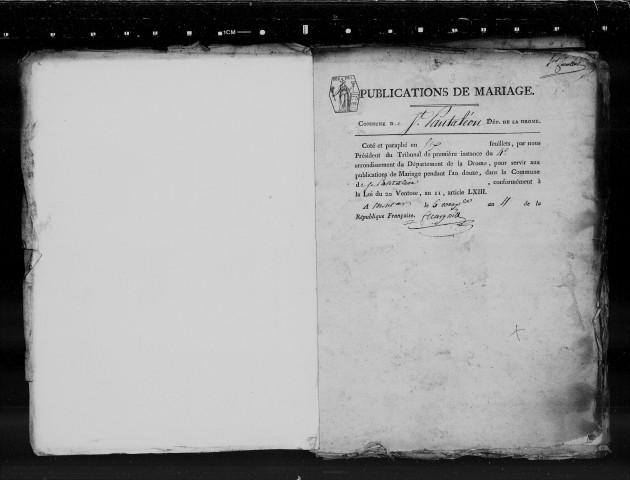 1CM
PUBLICATIONS DE MARIAGE.
COMMUNE D St. Pantaléon DÉP. DE LA DROME.
Coté et paraphé en six feuillets, par nous
Président du Tribunal de première instance du 4e
arrondissement du Département de la Drome, pour servir aux
publications de Mariage pendant l'an douze, dans la Commune
de St. Pantaléon, conformément à
la Loi du 20 Ventose, an 11, article LXIII.
A le 6 an 11 de la
République Française.